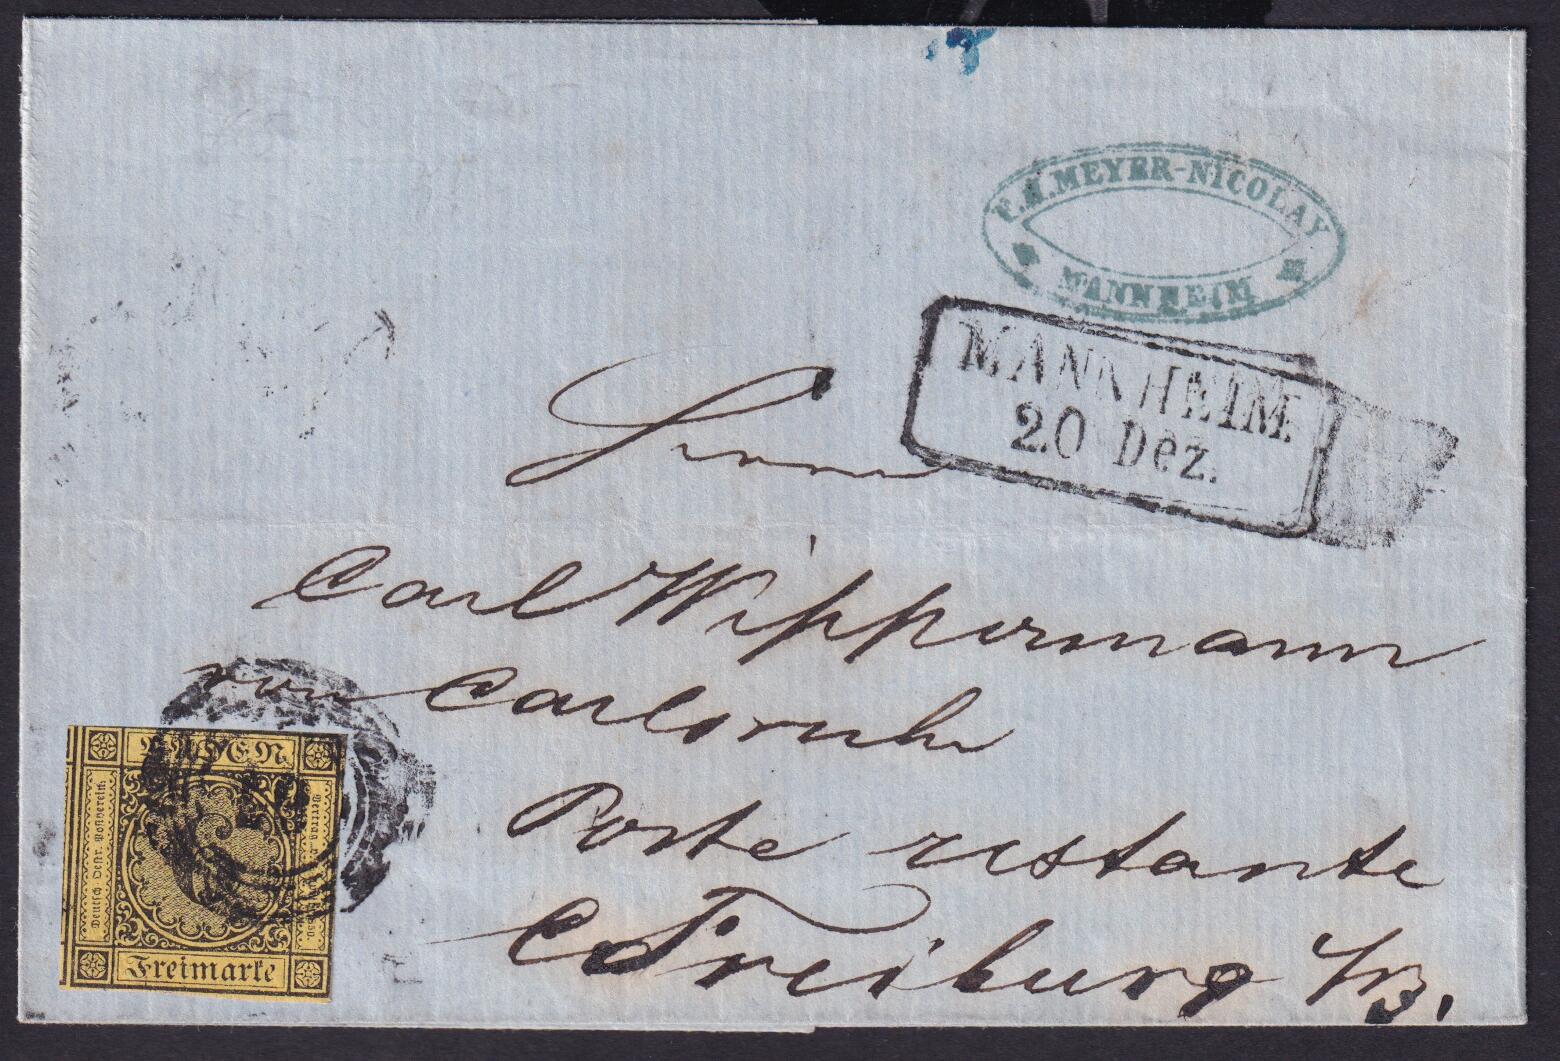 F. H. MEYER-NICOLAY
MANNHEIM
MANNHEIM
20 Dez.
Herrn
Carl Wippermann
von Carlsruhe
Poste restante
Freiburg i/B.
BADEN
Deutsch. Oestr. Postverein
Vertrag
Freimarke